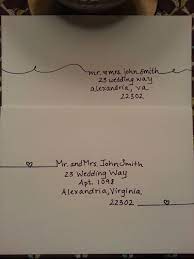 mr. & mrs. john smith
23 wedding way
alexandria, va
22302
Mr. and Mrs. John Smith
23 Wedding Way
Apt. 1098
Alexandria, Virginia
22302